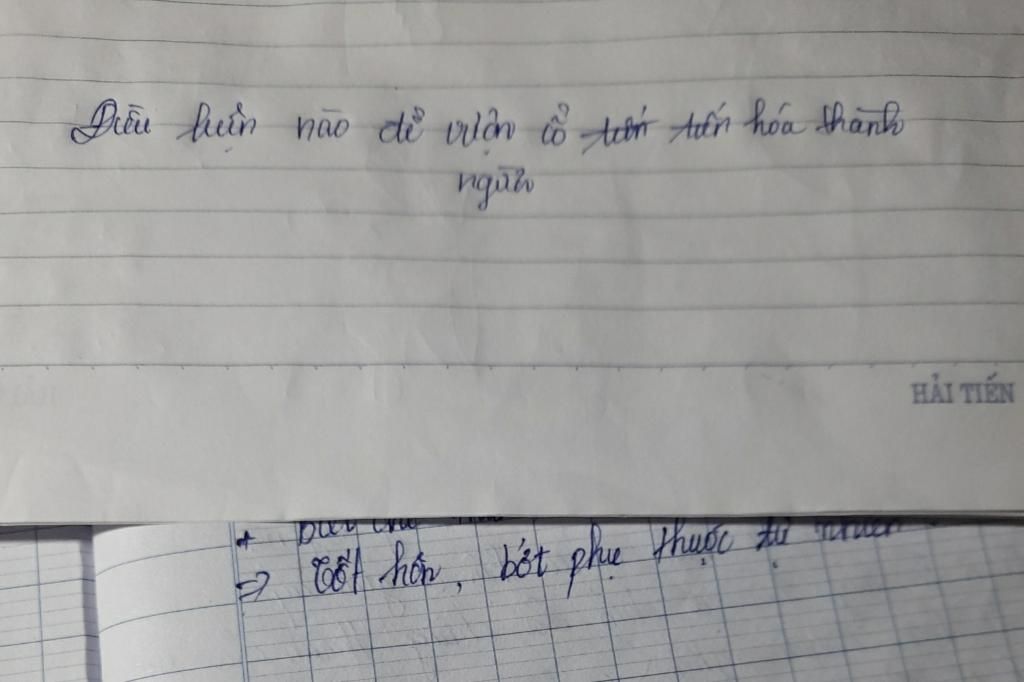 Điều kiện nào để vượn cổ tiến tiến hóa thành
người
HẢI TIẾN
+
=> Tốt hơn, bớt phụ thuộc tự nhiên